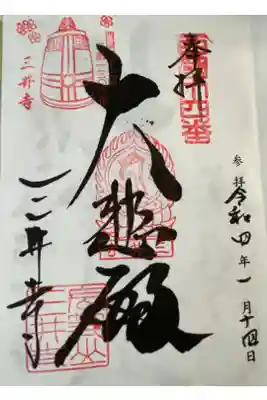 奉拝
参拝 令和四年一月十四日
大悲殿
三井寺
三井寺